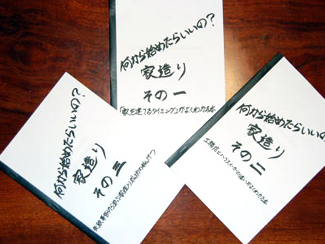 何から始めたらいいの?
家造り
その一
「家を建てるタイミング」がよくわかる本
何から始めたらいいの?
家造り
その三
何から始めたらいいの?
家造り
その二